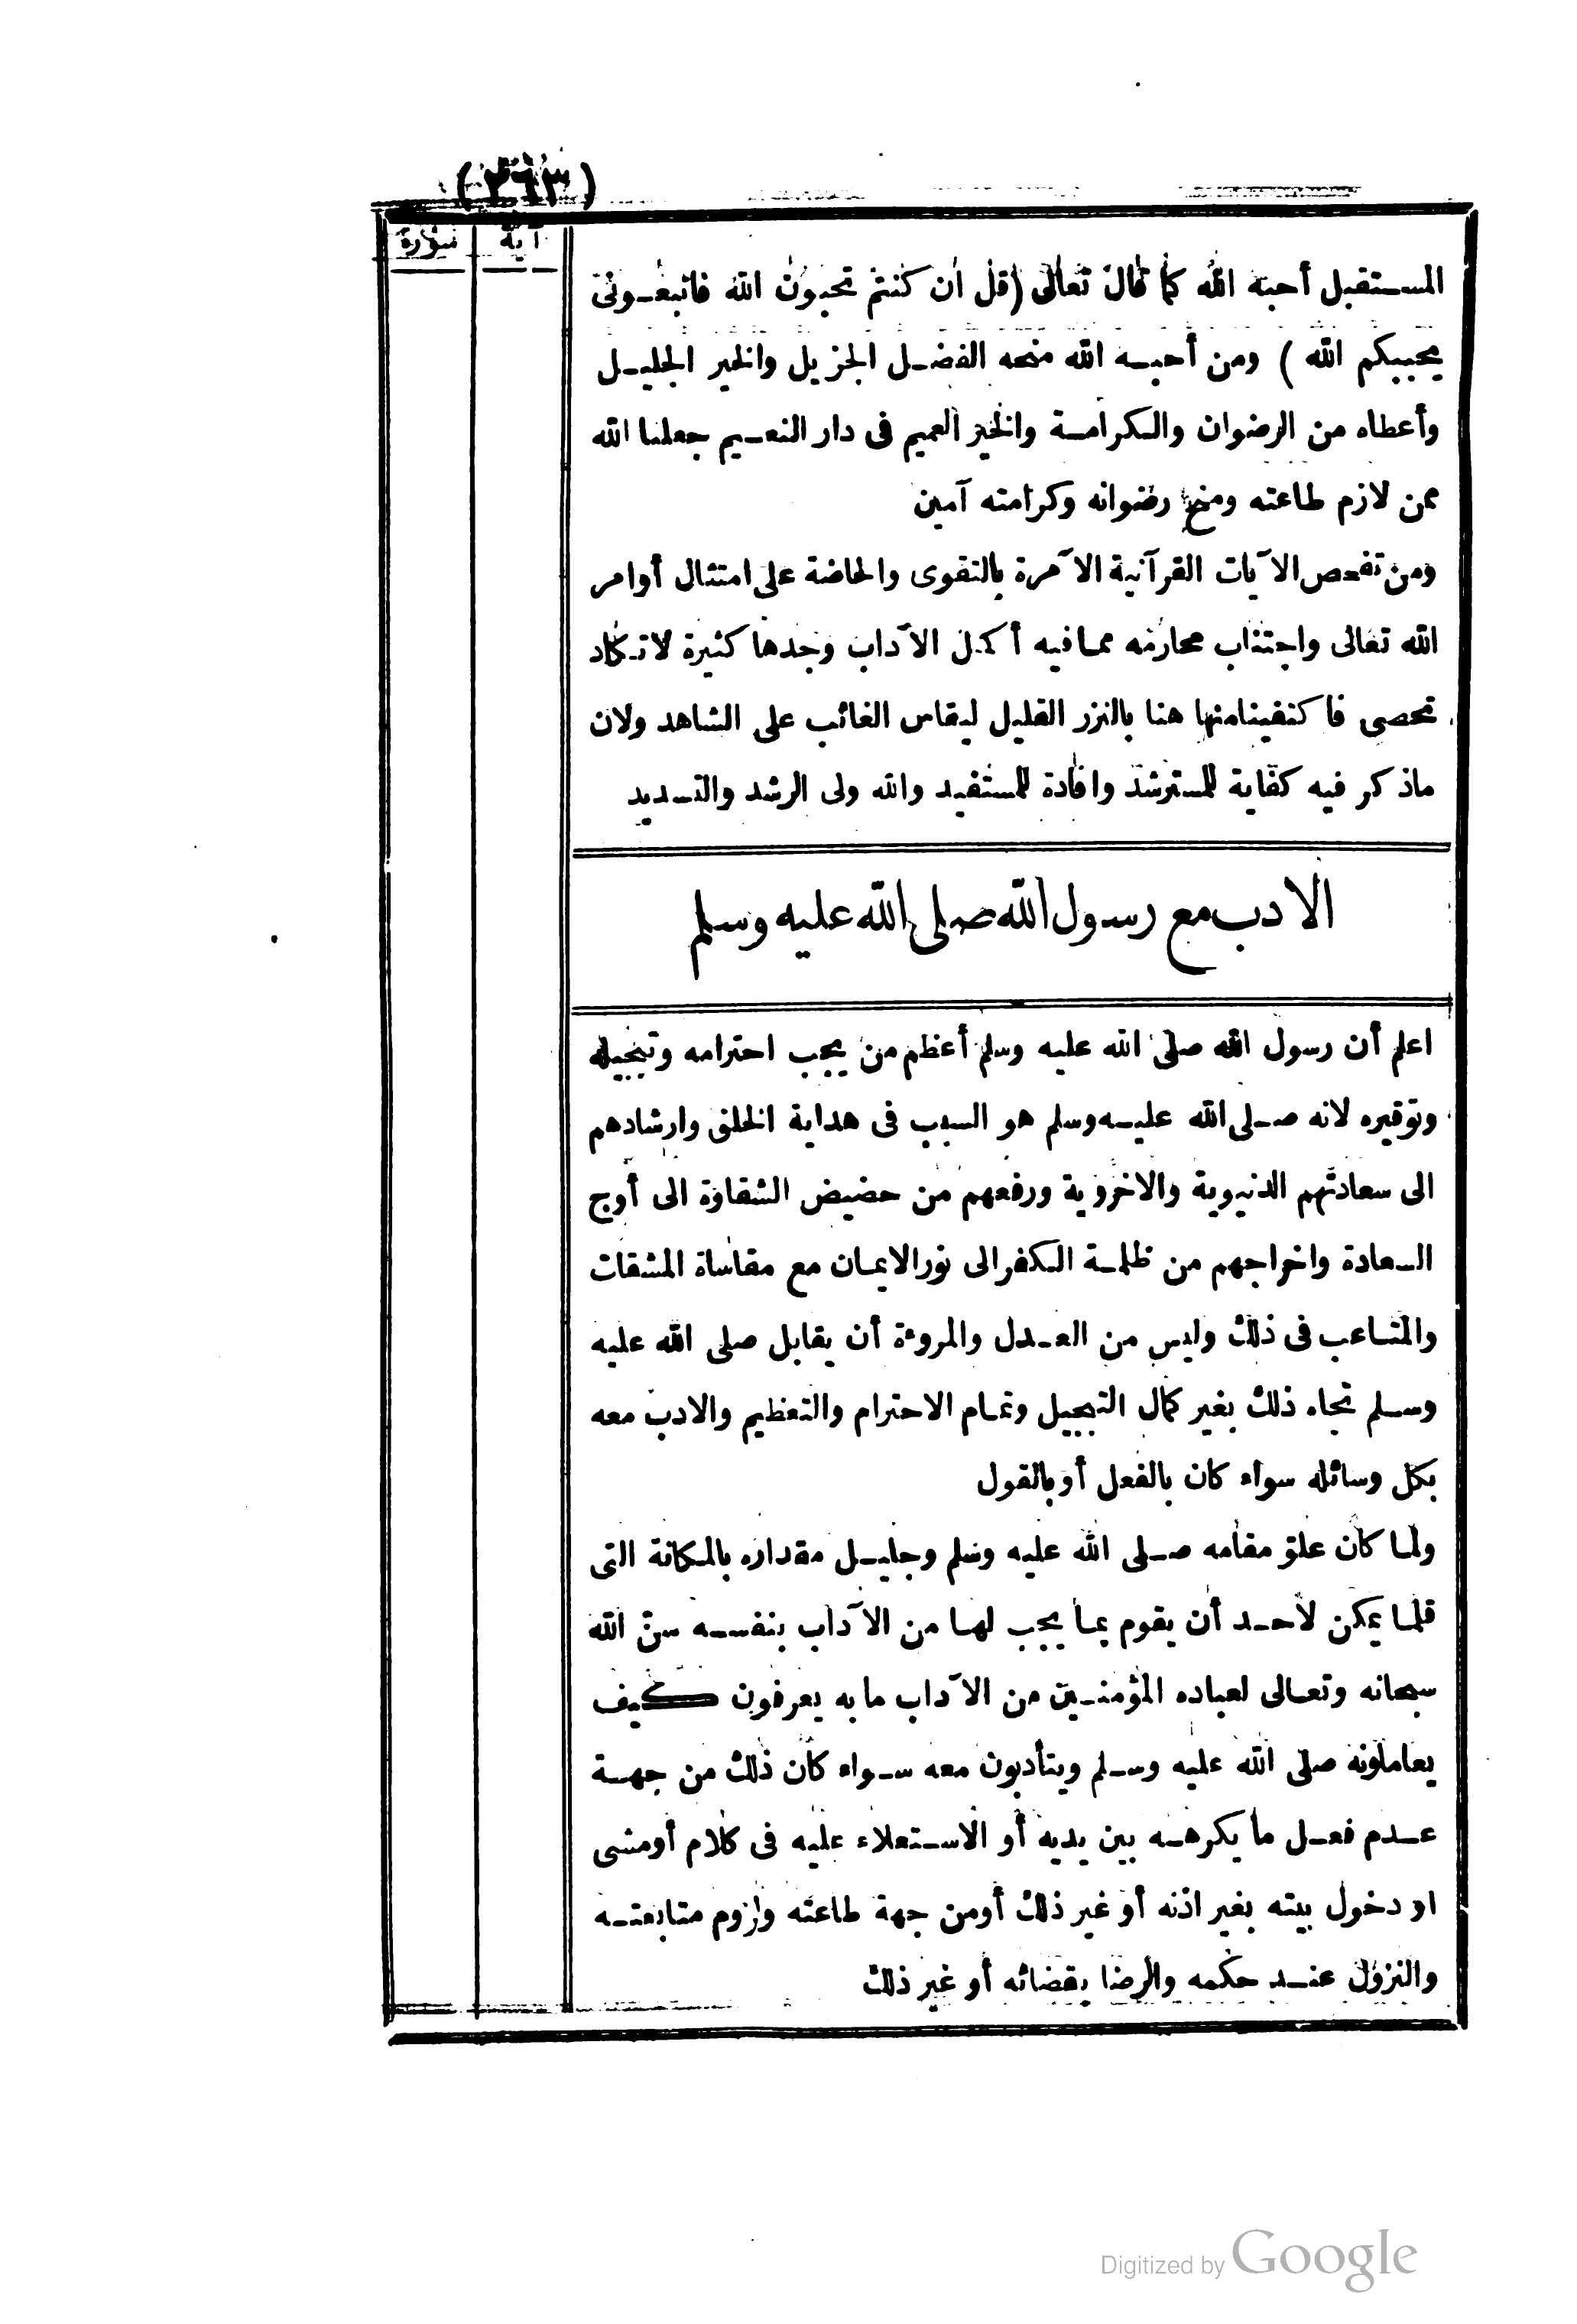 (٢٦٣)
آية سورة
المستقبل أحبه الله كما قال تعالى (قل ان كنتم تحبون الله فاتبعونى
يحببكم الله ) ومن أحبه الله منحه الفضل الجزيل والخير الجليل
وأعطاه من الرضوان والكرامة والخير العميم فى دار النعيم جعلنا الله
ممن لازم طاعته ومنح رضوانه وكرامته آمين
ومن تفحص الآيات القرآنية الآمرة بالتقوى والحاضة على امتثال أوامر
الله تعالى واجتناب محارمه مما فيه أكمل الآداب وجدها كثيرة لا تكاد
تحصى فاكتفينا منها هنا بالنزر القليل ليقاس الغائب على الشاهد ولان
ماذكر فيه كفاية للمسترشد وافادة للمستفيد والله ولى الرشد والتسديد
الادب مع رسول الله صلى الله عليه وسلم
اعلم أن رسول الله صلى الله عليه وسلم أعظم من يجب احترامه وتبجيله
وتوقيره لانه صلى الله عليه وسلم هو السبب فى هداية الخلق وارشادهم
الى سعادتهم الدنيوية والاخروية ورفعهم من حضيض الشقاوة الى أوج
السعادة واخراجهم من ظلمة الكفر الى نور الايمان مع مقاساة المشقات
والمتاعب فى ذلك وليس من العدل والمروءة أن يقابل صلى الله عليه
وسلم تجاه ذلك بغير كمال التبجيل وتمام الاحترام والتعظيم والادب معه
بكل وسائله سواء كان بالفعل أو بالقول
ولما كان علو مقامه صلى الله عليه وسلم وجليل مقداره بالمكانة التى
قلما يمكن لأحد أن يقوم بما يجب لها من الآداب بنفسه سن الله
سبحانه وتعالى لعباده المؤمنين من الآداب ما به يعرفون كيف
يعاملونه صلى الله عليه وسلم ويتأدبون معه سواء كان ذلك من جهة
عدم فعل ما يكرهه بين يديه أو الاستعلاء عليه فى كلام أو مشى
او دخول بيته بغير اذنه أو غير ذلك أو من جهة طاعته ولزوم متابعته
والنزول عند حكمه والرضا بقضائه أو غير ذلك
Digitized by Google